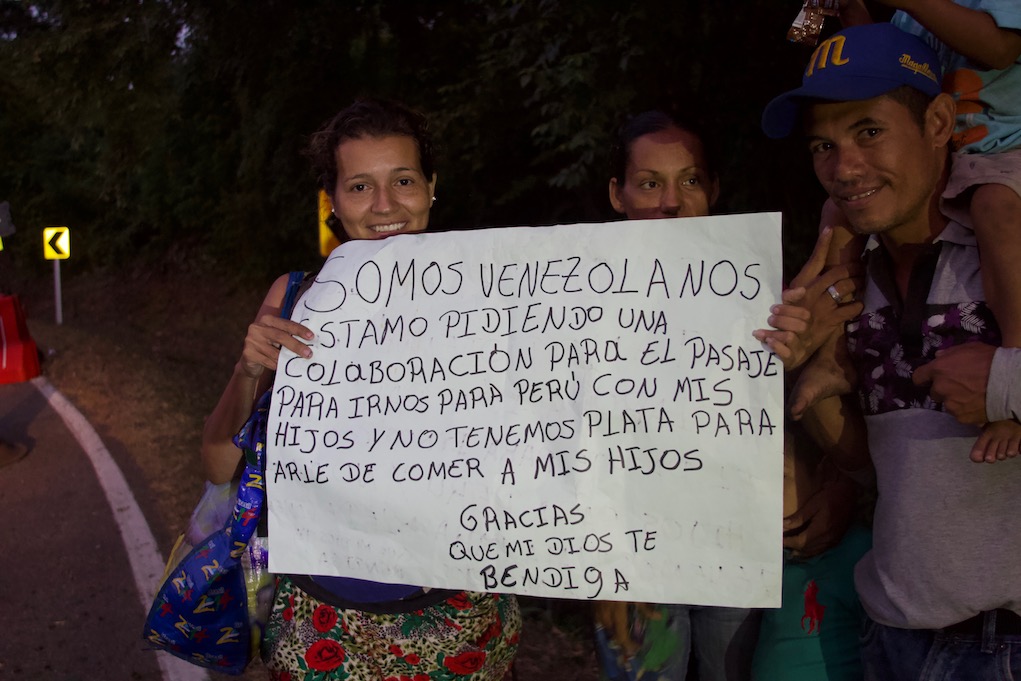 SOMOS VENEZOLANOS
ESTAMO PIDIENDO UNA
COLABORACIÓN PARA EL PASAJE
PARA IRNOS PARA PERÚ CON MIS
HIJOS Y NO TENEMOS PLATA PARA
ARLE DE COMER A MIS HIJOS
GRACIAS
QUE MI DIOS TE
BENDIGA
m
Magallanes